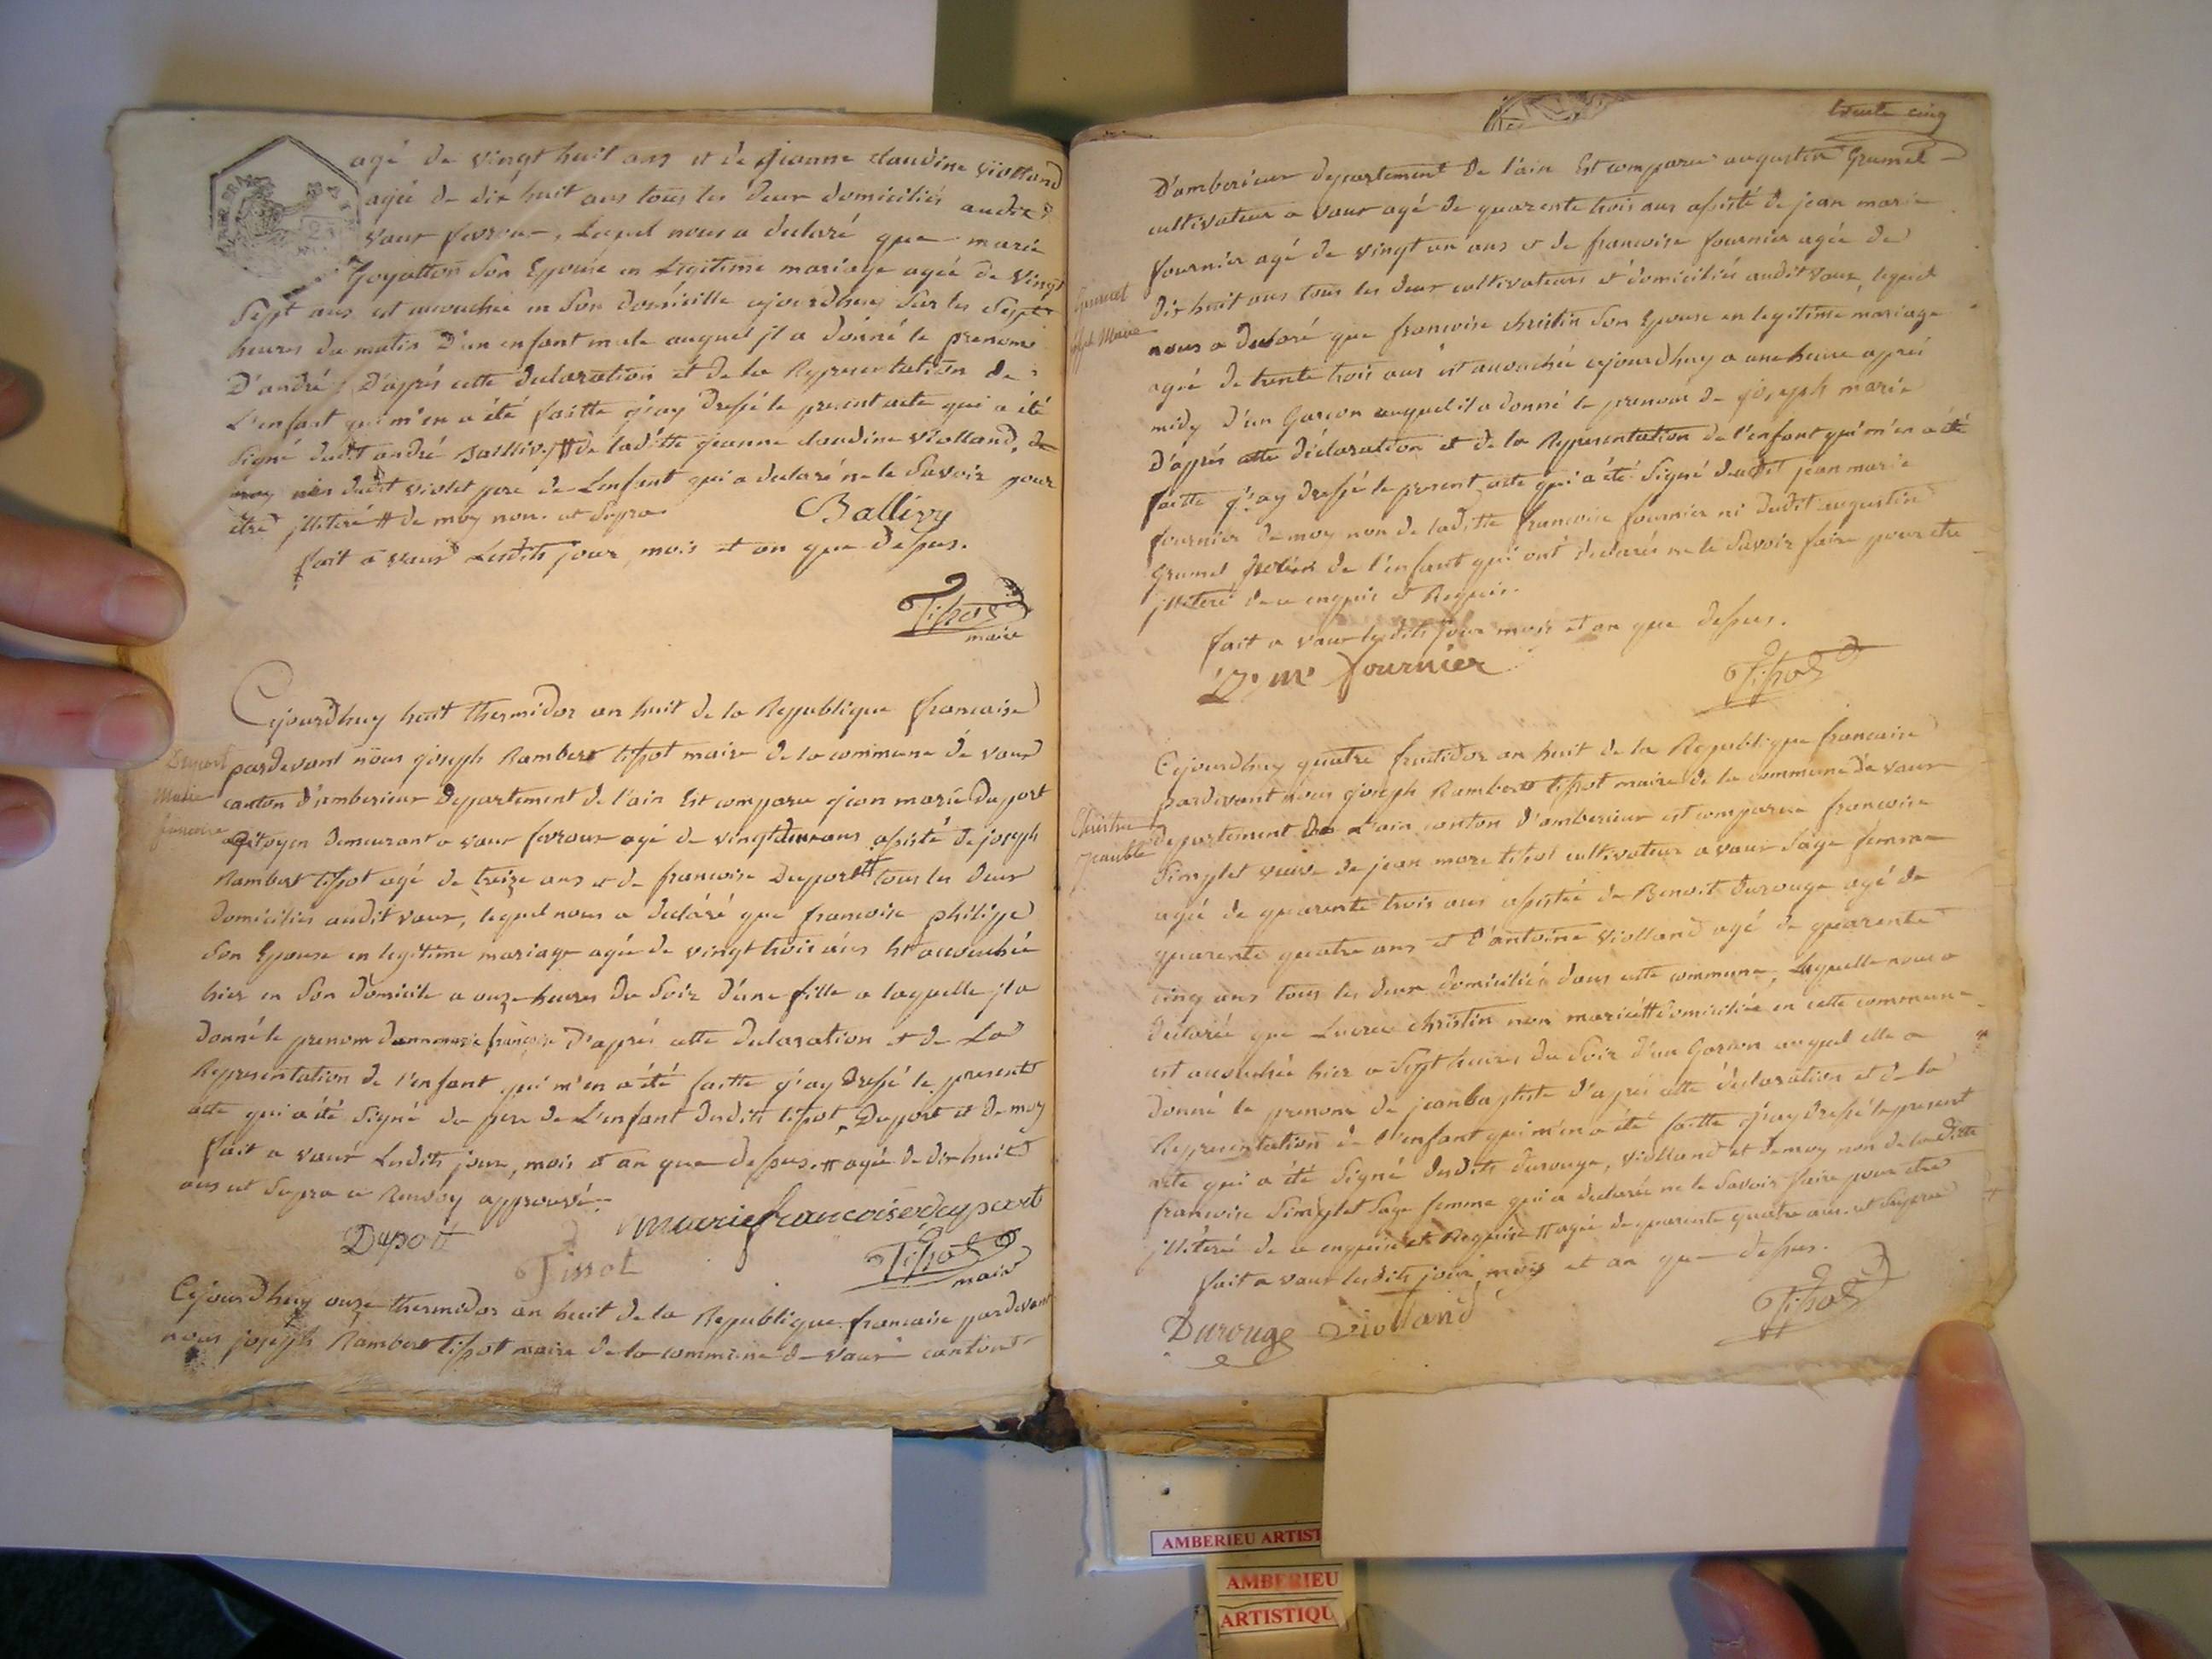 agé de vingt huit ans et de jeanne claudine violland
agée de dix huit ans tous les deux domiciliés audit
vaux fevroux, Lequel nous a declaré que marie
Goyatton son Epouse en Legitime mariage agée de vingt
Sept ans est accouchée en son domicille cejourdhuy sur les sept
heures du matin D'un enfant male auquel jl a donné le prenom
D'andré, D'aprés cette declaration et de la Representation de
L'enfant qui m'en a été faitte j'ay dressé le present acte qui a été
signé dudit andré Ballivy # de laditte jeanne claudine violland, de
moy non dudit violet pere de Lenfant qui a declaré ne le savoir pour
être jlliteré # de moy non. ut supra.
Ballivy
fait a vaux Lesdits jour, mois et an que dessus.
Tissot
maire
Cejourdhuy huit thermidor an huit de la Republique francaise
pardevant nous joseph Rambert tissot maire de la commune de vaux
Duport
Marie
francoise
canton d'amberieux Departement de l'ain Est comparu jean marie Duport
citoyen demeurant a vaux fevroux agé de vingt deux ans assisté de joseph
Rambert tissot agé de treize ans et de francoise Duport # tous les deux
domiciliés audit vaux, lequel nous a declaré que francoise philippe
son Epouse en legitime mariage agée de vingt trois ans Est accouchée
hier en son domicile a onze heures du soir d'une fille a laquelle jl a
donné le prenom d'anne marie françoise D'aprés cette declaration et de La
Representation de l'enfant qui m'en a été faitte j'ay dressé le present
acte qui a été signé du pere de L'enfant desdits tissot, Duport et de moy
fait a vaux Lesdits jour, mois et an que dessus. # agée de dix huit
ans ut supra ce Renvoy approuvé.
Duport
marie francoise duport
Tissot
Tissot
maire
Cejourdhuy onze thermidor an huit de la Republique francaise pardevant
nous joseph Rambert tissot maire de la commune de vaux canton
trente cinq
D'amberieux departement de l'ain Est comparu augustin Grumel
cultivateur a vaux agé de quarente trois ans assisté de jean marie
fournier agé de vingt un ans et de francoise fournier agée de
Grumel
jph Marie
dix huit ans tous les deux cultivateurs et domiciliés audit vaux, lequel
nous a declaré que francoise christin son Epouse en legitime mariage
agée de trente trois ans est accouchée cejourdhuy a une heure apprés
midy d'un Garcon auquel il a donné le prenom de joseph marie
D'aprés cette déclaration et de la Representation de l'enfant qui m'en a été
faitte j'ay dressé le present acte qui a été signé dudit jean marie
fournier de moy non de laditte francoise fournier ni dudit augustin
Grumel pere de l'enfant qui ont declarés ne le savoir faire pour etre
jlliteré de ce enquis et Requis.
fait a vaux lesdits jour mois et an que dessus.
J. m. fournier
Tissot
Cejourdhuy quatre fructidor an huit de la Republique francaise
pardevant nous joseph Rambert tissot maire de la commune de vaux
Christin
jeanbte
departement de L'ain canton d'amberieux est comparue francoise
Simplet veuve de jean marc tissot cultivateur a vaux sage femme
agée de quarente trois ans assistée de Benoit Durouge agé de
quarente quatre ans et d'antoine violland agé de quarente
cinq ans tous les deux domiciliés dans cette commune, Laquelle nous a
declarée que Lucrece christin non mariée # domiciliée en cette commune
est accouchée hier a sept heures du soir d'un Garcon auquel elle a
donné le prenom de jeanbaptiste d'aprés cette declaration et de la
Representation de l'enfant qui m'en a été faitte j'ay dressé le present
acte qui a été signé desdits durouge, violland et de moy non de laditte
francoise Simplet sage femme qui a declarée ne le savoir faire pour etre
jlliterée de ce enquise et Requise # agée de quarente quatre ans. ut supra
fait a vaux lesdits jour, mois et an que dessus.
Durouge violland
Tissot
AMBERIEU ARTIST
AMBERIEU
ARTISTIQU